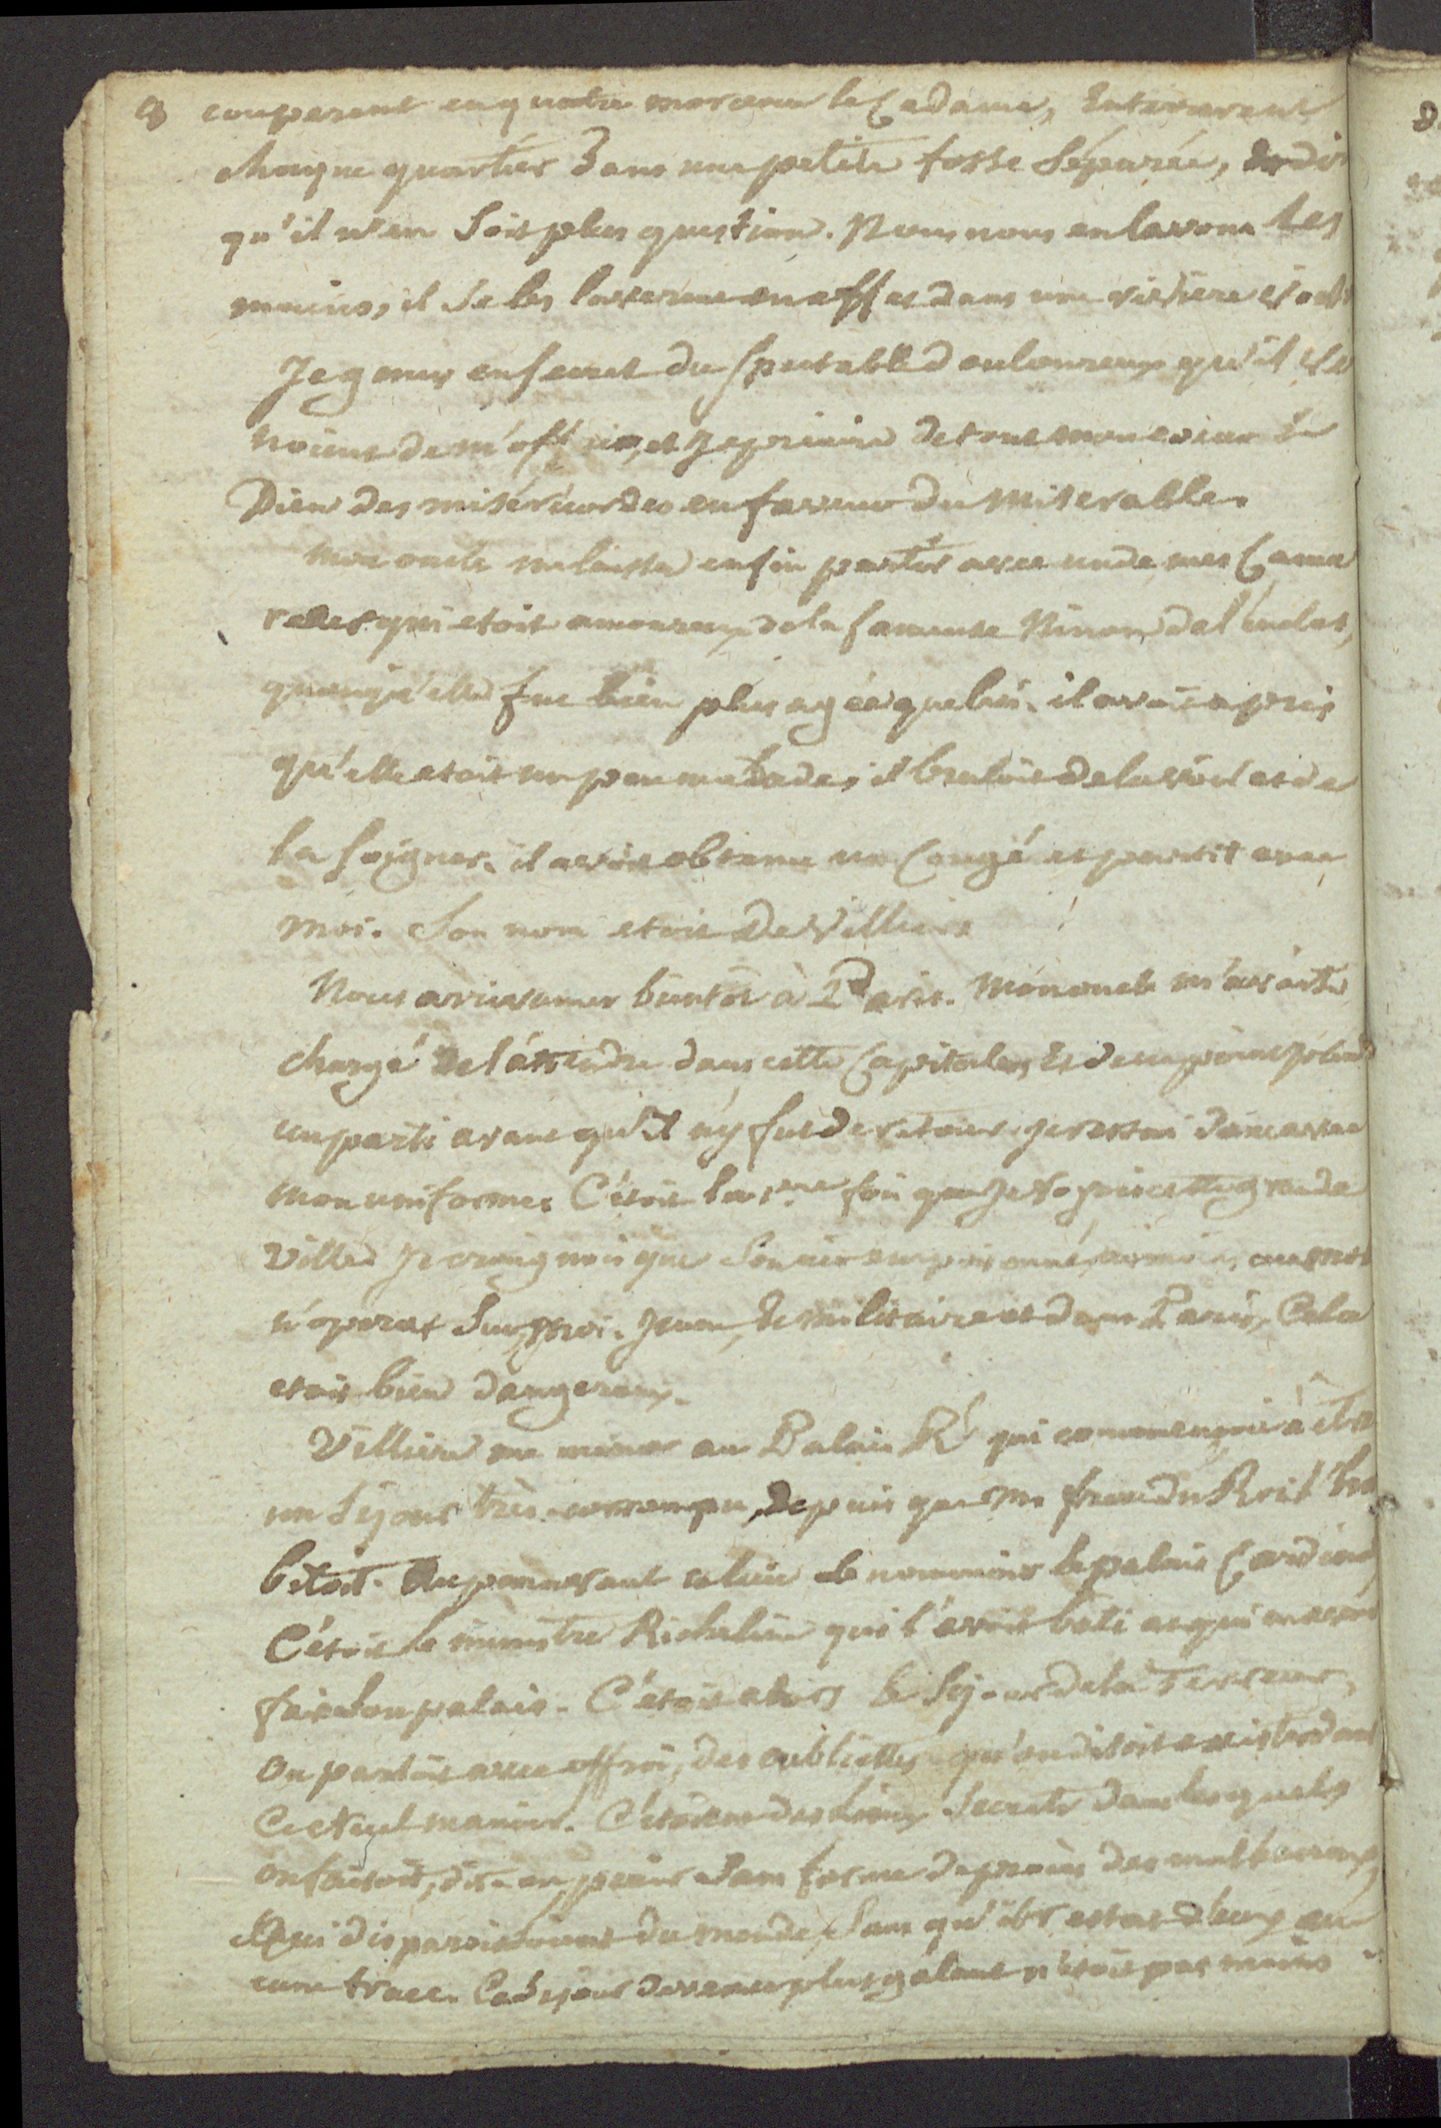 8 couperent en quatre morceaux le Cadavre, Enterrerent
chaque quartier dans une petite fosse Séparée, et dir
qu'il n'en Soit plus question. Nous nous en lavons les
mains, il Se les laverent en effet dans une riviere
Je gemis en Secret du Spectable douloureux qu'il ve
noient de m'offrir, et Je priai de tout mon coeur le
Dieu des miséricordes en faveur du Miserable.
Mon oncle me laissa enfin partir avec un de mes Cama
rades qui etoit amoureux de la fameuse Ninon de l'enclos,
quoiqu'elle fut bien plus agée que lui. il avoit apris
qu'elle etoit un peu malade, il bruloit de la voir et de
la soigner. il avoit obtenu un Congé et partit avec
moi. Son nom etoit De Villiers
Nous arrivames bientôt à Paris. Mon oncle m'avoit
chargé de l'attendre dans cette Capitale, Et de ne point prendre
un parti avant qu'il n'y fut de retour. je restai donc avec
mon uniforme. C'étoit la 1ere fois que Je voyois cette grande
Ville. Je craignois que Son air empoisonné
n'operat Sur moi. Jeune, Et militaire et dans Paris, Cela
etoit bien dangereux.
Villiers me mena au Palais Rl qui commençoit à être
un Séjour très-corrompu, depuis que Mr. frere du Roi l'ha
bitoit. Auparavant ce lieu se nommoit le palais Cardinal,
C'étoit le ministre Richelieu qui l'avoit bati et qui en avoit
fait Son palais. C'étoit alors le Séjour de la Terreur,
On parloit avec effroi, des oubliettes qu'on disoit exister dans
Ce Vieil manoir. C'étoient des Lieux Secrets dans lesquels
on faisoit, dit-on, perir Sans forme de procès des malheureux,
Qui disparoissoient du monde, Sans qu'il restat d'eux au
cune trace. Ce Séjour devenu plus galant n'étoit pas moins